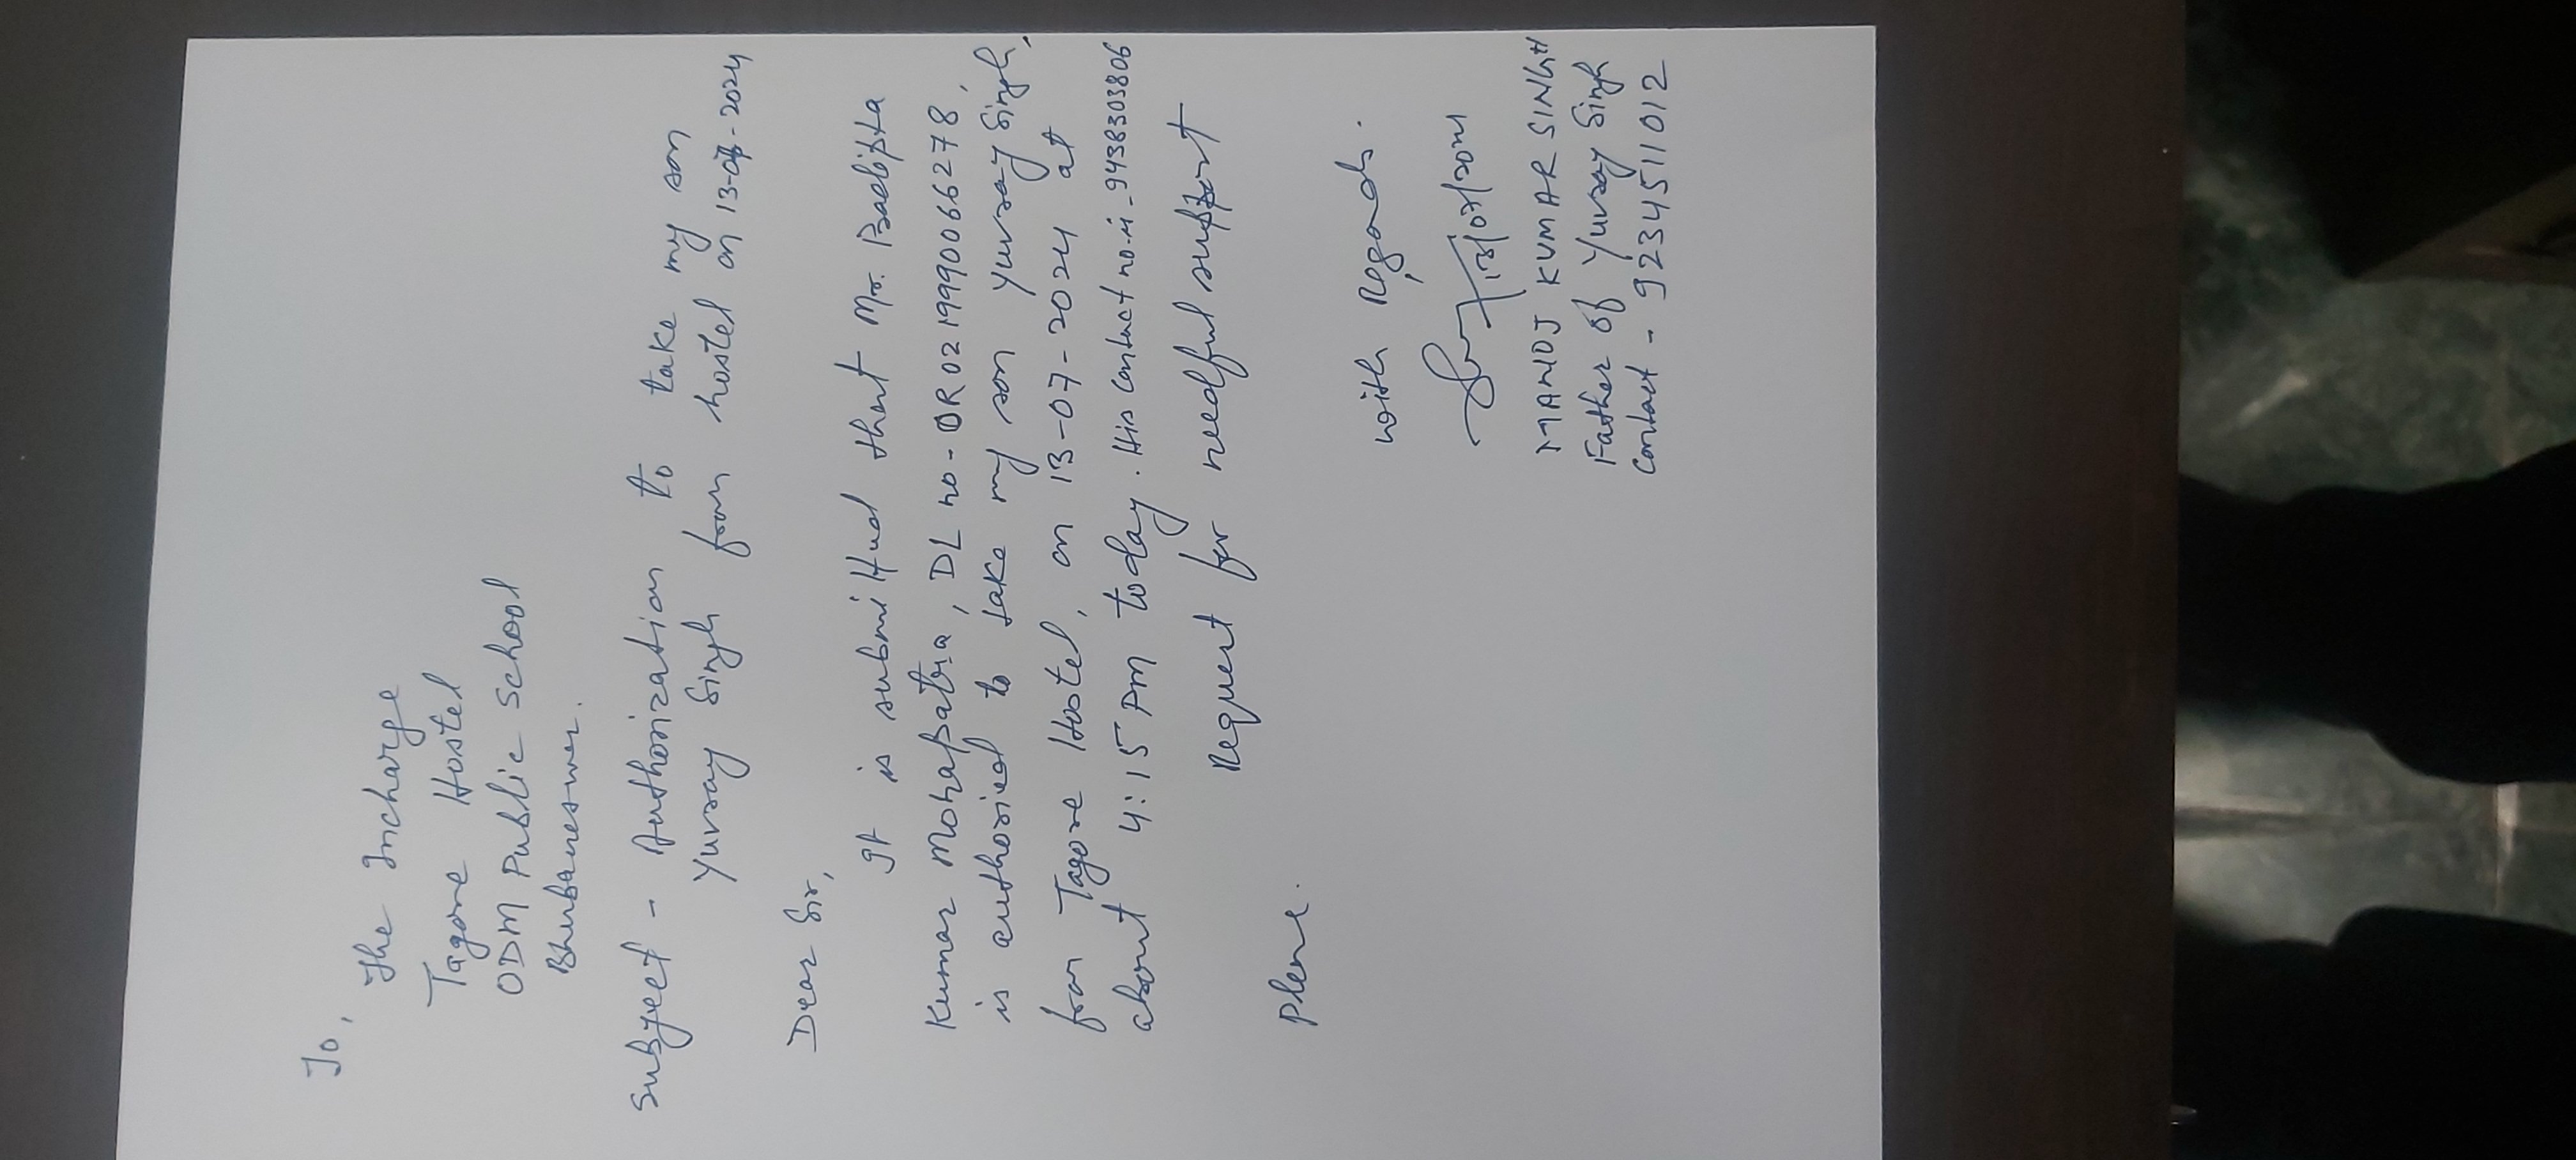 To,
The Incharge
Tagore Hostel
ODM Public School
Bhubaneswar.
Subject - Authorization to take my son
Yuvraj Singh from hostel on 13-07-2024
Dear Sir,
It is submitted that Mr. Pradipta
Kumar Mohapatra, DL no - OR0219990066278,
is authorized to take my son Yuvraj Singh,
from Tagore Hostel, on 13-07-2024 at
about 4:15 PM today. His contact no-is - 9438303806
Request for needful support
Please.
with Regards.
13/07/2024
MANOJ KUMAR SINGH
Father of Yuvraj Singh
Contact - 9234511012